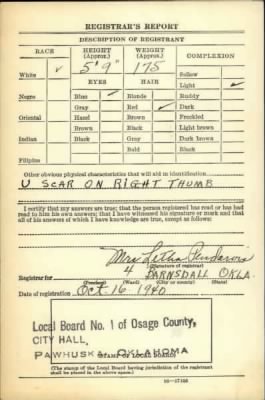 REGISTRAR'S REPORT
DESCRIPTION OF REGISTRANT
RACE
HEIGHT
(Approx.)
WEIGHT
(Approx.)
COMPLEXION
White ✓
5' 9"
175
Sallow
Light ✓
EYES
HAIR
Negro
Blue ✓
Blonde
Ruddy
Gray
Red ✓
Dark
Oriental
Hazel
Brown
Freckled
Brown
Black
Light brown
Indian
Black
Gray
Dark brown
Bald
Black
Filipino
Other obvious physical characteristics that will aid in identification
U SCAR ON RIGHT THUMB
I certify that my answers are true; that the person registered has read or has had
read to him his own answers; that I have witnessed his signature or mark and that
all of his answers of which I have knowledge are true, except as follows:
Mrs Letha
(Signature of registrar)
Registrar for
4
BARNSDALL
OKLA.
(Ward)
(City or county)
(State)
Date of registration Oct 16 1940
Local Board No. 1 of Osage County,
CITY HALL,
PAWHUSKA, OKLAHOMA
(STAMP OF LOCAL BOARD)
(The stamp of the Local Board having jurisdiction of the registrant
shall be placed in the above space.)